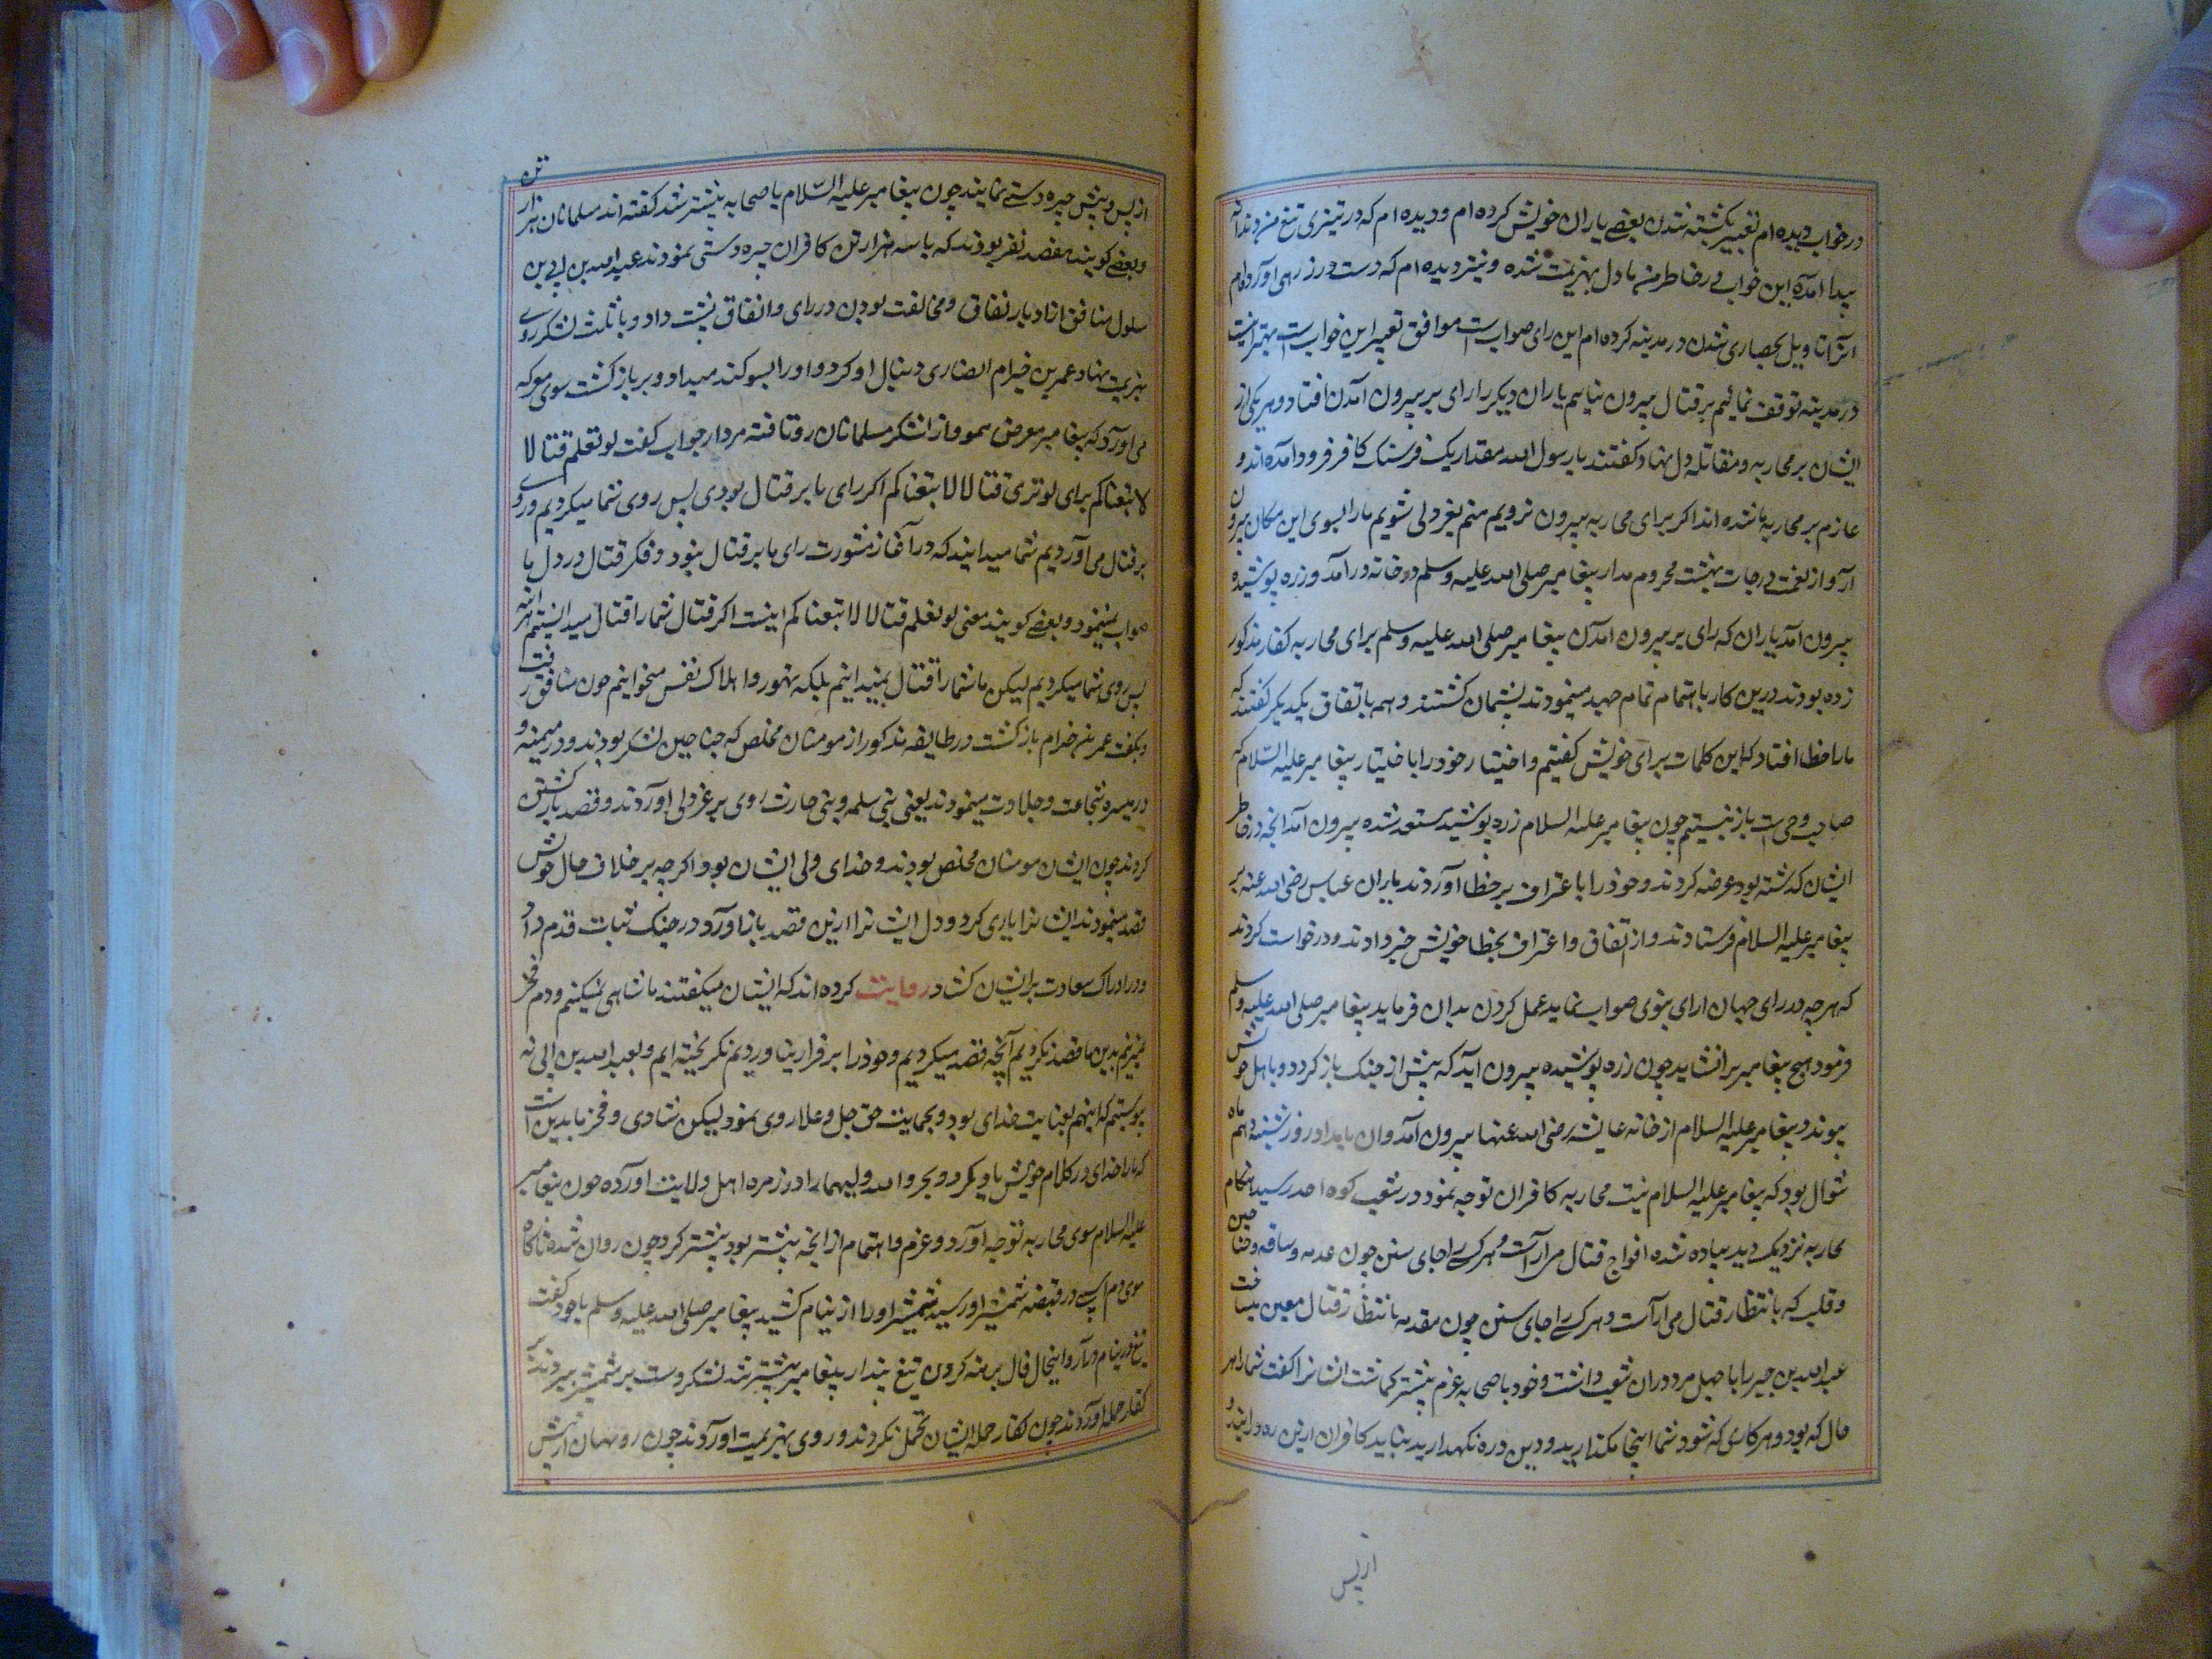 در خواب دیده ام تعبیر بکشته شدن بعضے یاران خویش کرده ام و دیده ام که در تیزی تیغ من دندانه
پیدا آمده این خواب در خاطر من بادل بهزیمت شده و نیز دیده ام که دست در زرهی آورده ام
انرا تاویل بحصاری شدن در مدینه کرده ام این رای صوابست موافق تعبیر این خوابست بهتر اینست
در مدینه توقف نمائیم بر قتال بیرون نیائیم یاران دیکر را رای بر بیرون آمدن افتاد و هریکی از
ایشان بر محاربه و مقاتله دل نهاد کفتند یا رسول الله مقدار یک فرسنک کافر فرود آمده اند و
عازم بر محاربه ما شده اند اکر برای محاربه بیرون نرویم متهم بغردلی شویم ما را بسوی این مکان بیرون
آر و از نعمت درجات بهشت محروم مدار پیغامبر صلی الله علیه وسلم در خانه درآمد و زره پوشیده
بیرون آمد یاران که رای بر بیرون آمدن پیغامبر صلی الله علیه وسلم برای محاربه کفار مذکور
زده بودند درین کار با هتمام تمام جهد مینمودند پشیمان کشتند و همه باتفاق یکدیکر کفتند که
ما را خطا افتاد که این کلمات برای خویش کفتیم و اختیار خود را با ختیار پیغامبر علیه السلام که
صاحب وحی است باز نبستیم چون پیغامبر علیه السلام زره پوشیده مستعد شده بیرون آمد انچه در خاطر
ایشان کذشته بود عرضه کردند و خود را با عتراف بر خطا آوردند یاران عباس رضی الله عنه بر
پیغامبر علیه السلام فرستادند و از اتفاق و اعتراف بخطا خویش خبر دادند و درخواست کردند
که هرچه در رای جهان ارای نبوی صواب نماید عمل کردن بدان فرماید پیغامبر صلی الله علیه وسلم
فرمود هیچ پیغامبر برا نشاید چون زره پوشیده بیرون آید که پیش از جنک باز کردد و با هل خویش
پیوندد پیغامبر علیه السلام از خانه عایشه رضی الله عنها بیرون آمد و ان بامداد روز شنبه دهم ماه
شوال بود که پیغامبر علیه السلام نیت محاربه کافران توجه نمود در شعب کوه احد رسید هنکام
محاربه نزدیک دید پیاده شده افواج قتال می آراست و هر کسے را جای ستن چون مقدمه و ساقه و جناحین
و قلب که با نتظار قتال می آراست و هر کسے را جای ستن چون مقدمه با نتظار قتال معین ساخت
عبد الله بن جبیر را با چهل مرد در ان شعب داشت و خود با صحابه عزم پیشتر کماشت انشانرا کفت شما را هر
حال که بود و هر کاری که شود شما اینجا مکذارید و دین دره نکهدارید نباید کافران ازین ره در ایند و
از پس
از پس و پیش چیره دستے نمایند چون پیغامبر علیه السلام با صحابه پیشتر شد کفته اند مسلمانان هزار تن
و بعضے کویند هفصد نفر بودند که با سه هزار تن کافران چیره دستی نمودند عبد الله بن ابی بن
سلول منافق انقاد با ر نفاق و مخالفت بودن در رای و اتفاق پشت داد و با ثلث لشکر روے
بهزیمت نهاد عمر بن خزام انصاری دنبال او کرد و او را بسوکند میداد و بر باز کشت سوی معرکه
می آورد که پیغامبر معرض هموواز لشکر مسلمانان رو تافته مردار جواب کفت لو نعلم قتالا
لاتبعناکم برای لو نری قتالا لاتبعناکم اکر رای ما بر قتال بودی پس روی شما میکردیم و رو
بر قتال می آوردیم شما میدانید که در آغاز مشورت رای ما بر قتال نبود و فکر قتال در دل ما
صواب نمینمود و بعضے کویند معنی لو نعلم قتالا لاتبعناکم اینست اکر قتال شما را قتال میدانیستیم هر اینه
پس روی شما میکردیم لیکن ما شما را قتال نمیدانیم بلکه تهور و اهلاک نفس میخوانیم چون منافق رفت
و بکفت عمر بن خزام باز کشت در طایفه مذکور از مومنان مخلص که جناحین لشکر بودند و در میمنه و
در میسره شجاعت و جلادت مینمودند یعنی بنی سلمه و بنی حارث روی بر غردلی آوردند و قصد باز کشتن
کردند چون ایشان مومنان مخلص بودند و خدای ولی ایشان بود اکرچه بر خلاف حال خویش
قصد مینمودند ایشانرا یاری کرد و دل ایشانرا ازین قصد باز آورد و در جنک ثبات قدم داد
و در ادراک سعادت بر ایشان کشاد روایت کرده اند که ایشان میکفتند ما شاهی نمیکنیم و دم فخر
نمیزنیم بدین ما قصد نکردیم آنچه قصد میکردیم و خود را بر قرار نیاوردیم نکریخته ایم و بعبد الله بن ابی نه
پیوستیم که اینهم بعنایت خدای بود و بحمایت حق جل و علا روی نمود لیکن شادی و فخر ما بدین است
که ما را خدای در کلام خویش یاد کرد و بحر والله ولیهما را در زمره اهل ولایت آورده چون پیغامبر
علیه السلام سوی محاربه توجه آورد و عزم و اهتمام از انچه پیشتر بود پیشتر کرد چون روان شد ناکاه
موی دم اسپ در قبضه شمشیر او رسید شمشیر او را از نیام کشید پیغامبر صلی الله علیه وسلم با خود کفت
تیغ در نیام در آر و اینحال فال برهنه کردن تیغ پندار پیغامبر پیشتر شد لشکر دست بر شمشیر بردند بر
کفار حمله آوردند چون کفار حمله ایشان تحمل نکردند و روی بهزیمت آوردند چون رو بهان از پیش